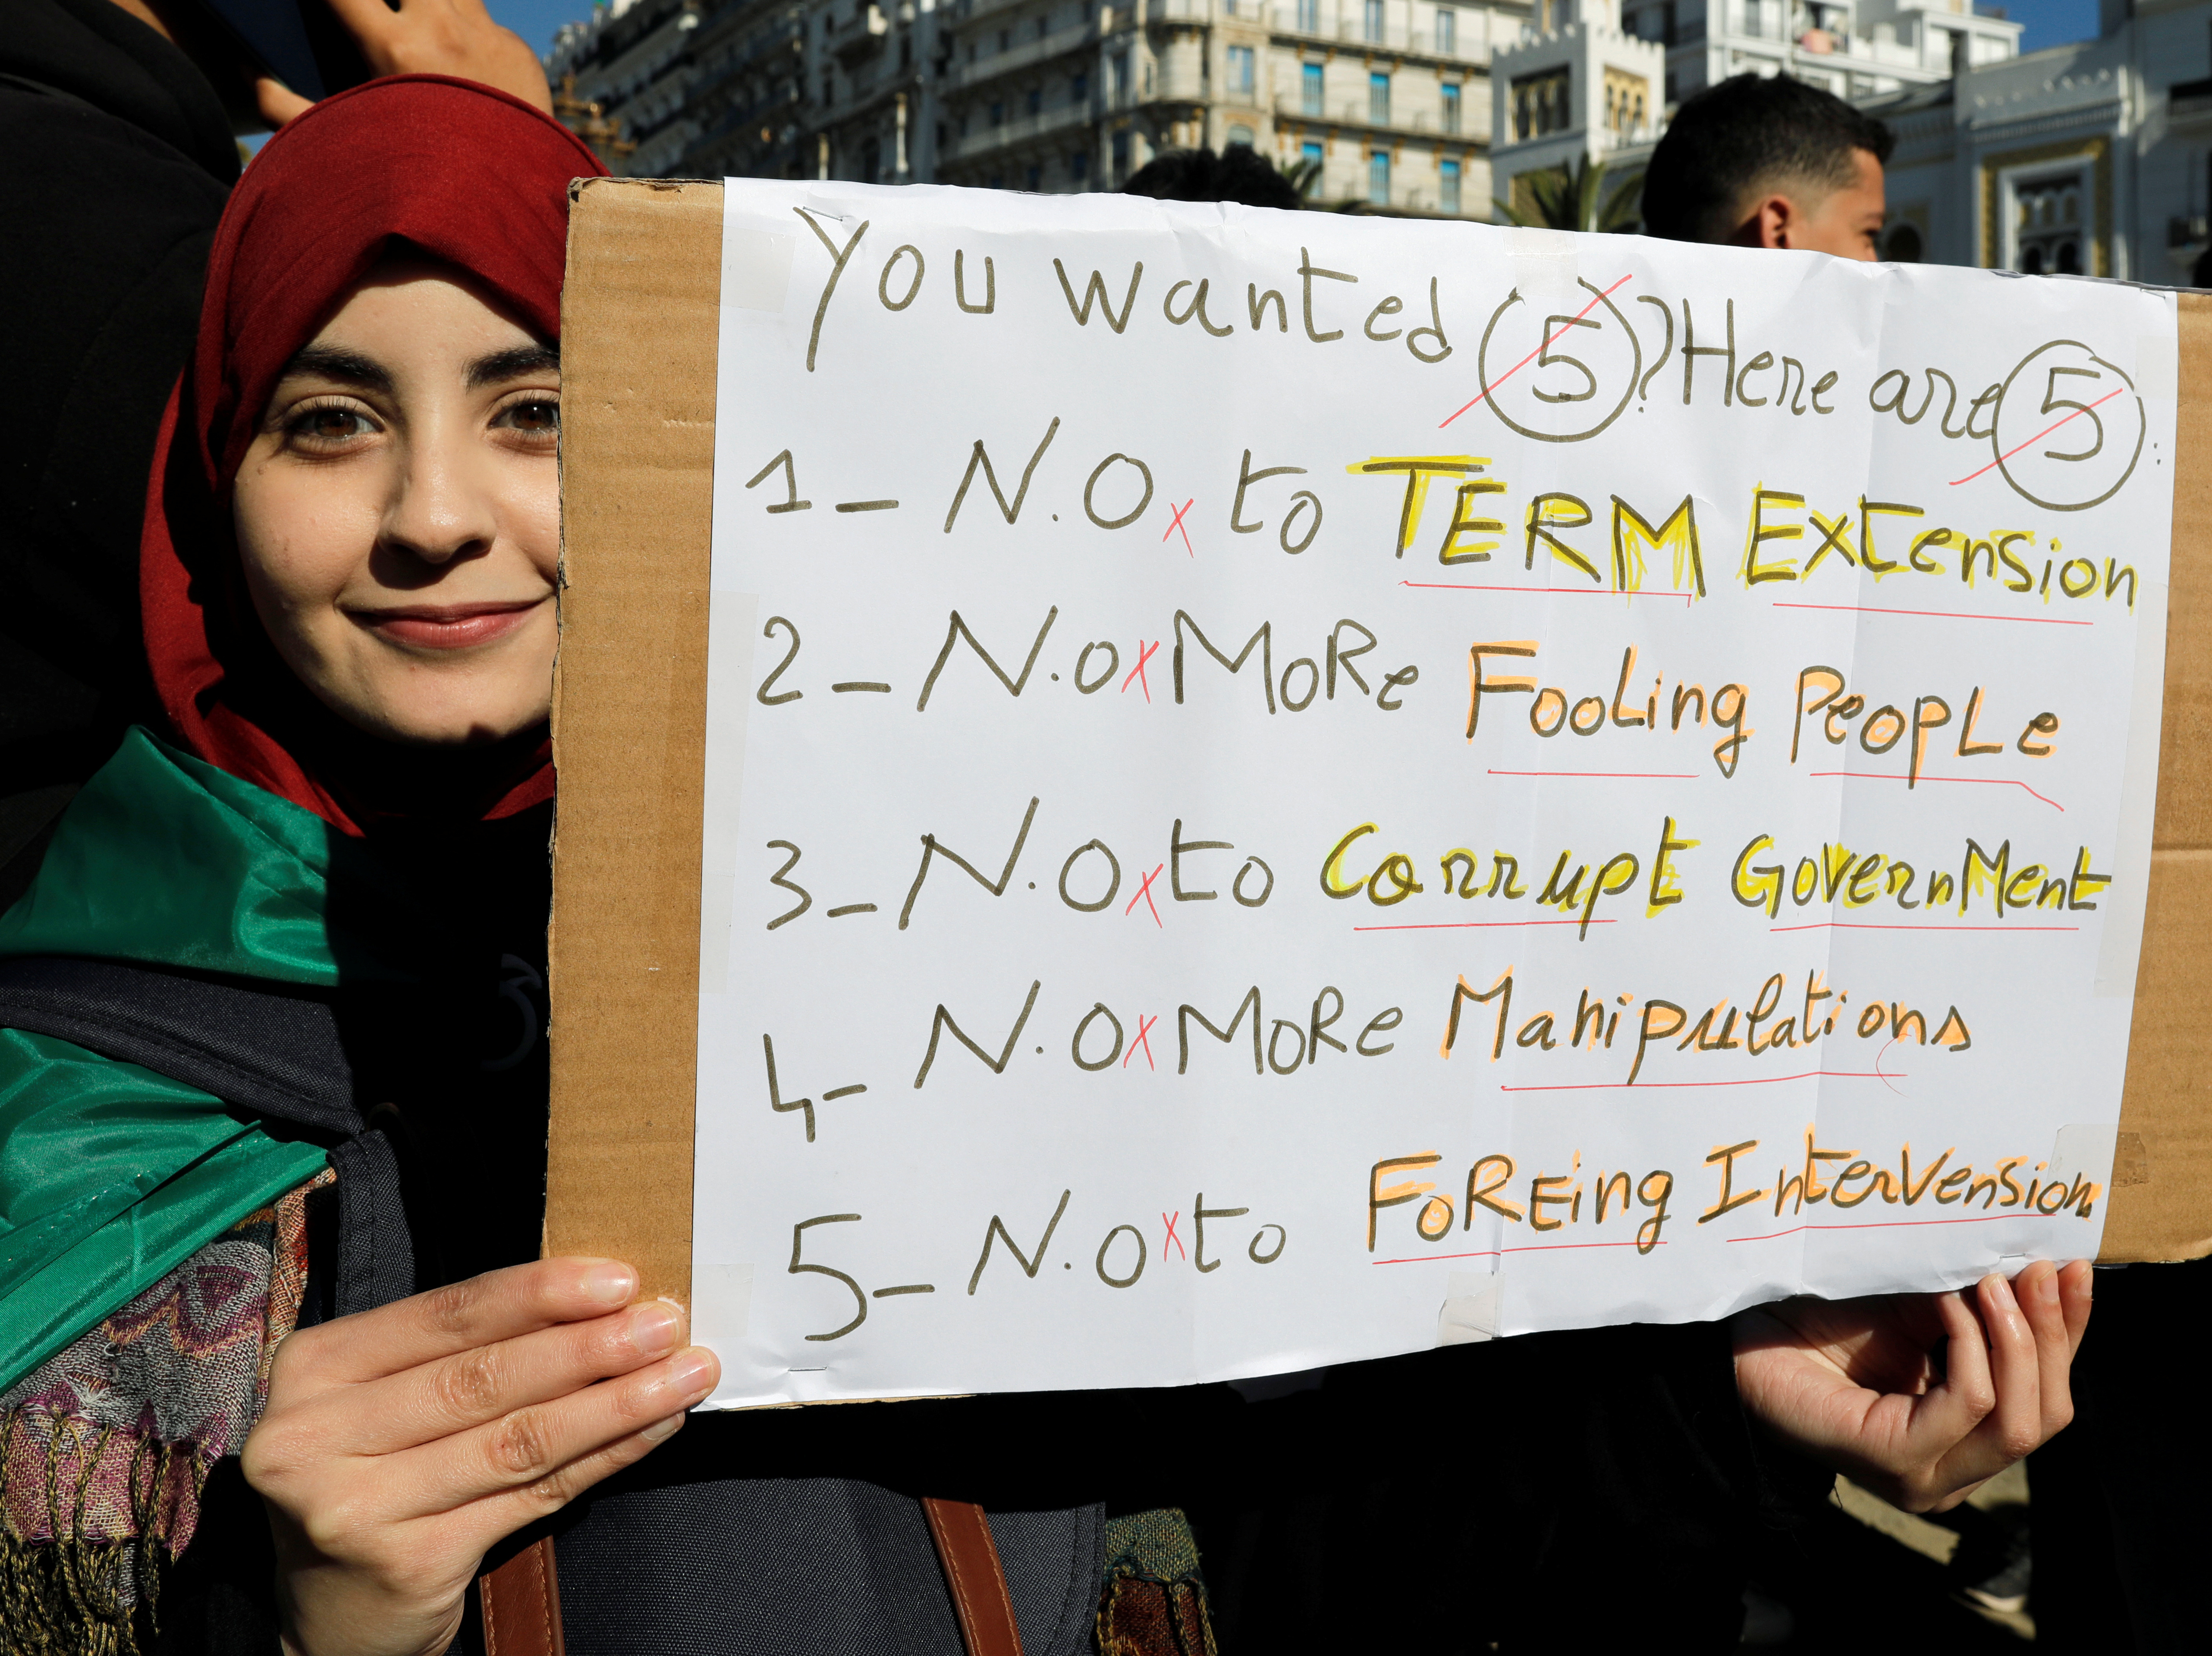 You wanted 5? Here are 5:
1_ N.O to TERM Extension
2_ N.O MoRe FooLing PeopLe
3_ N.O to Corrupt GovernMent
4_ N.O MoRe Manipulations
5_ N.O to FoREing InterVension